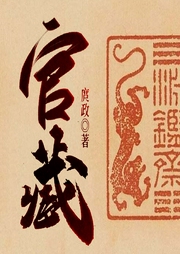 官藏
庹政◎著